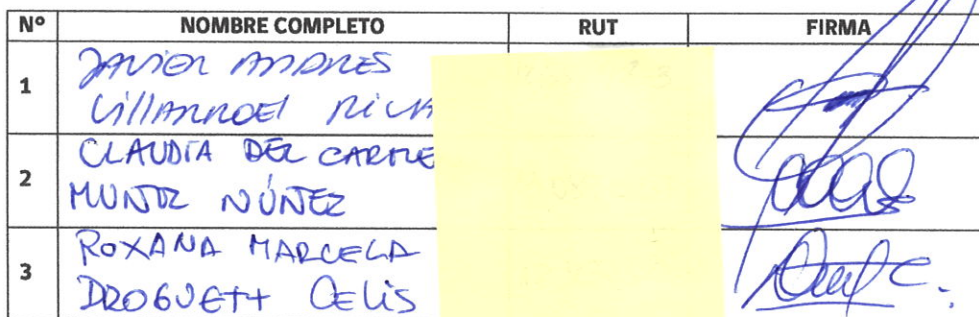 Nº NOMBRE COMPLETO RUT FIRMA
1
JAVIER ANDRES
VillARROEl RIVA
2
CLAUDIA DEL CARME
MUÑOZ NÚÑEZ
3
ROXANA MARCELA
DROGUETT CELIS